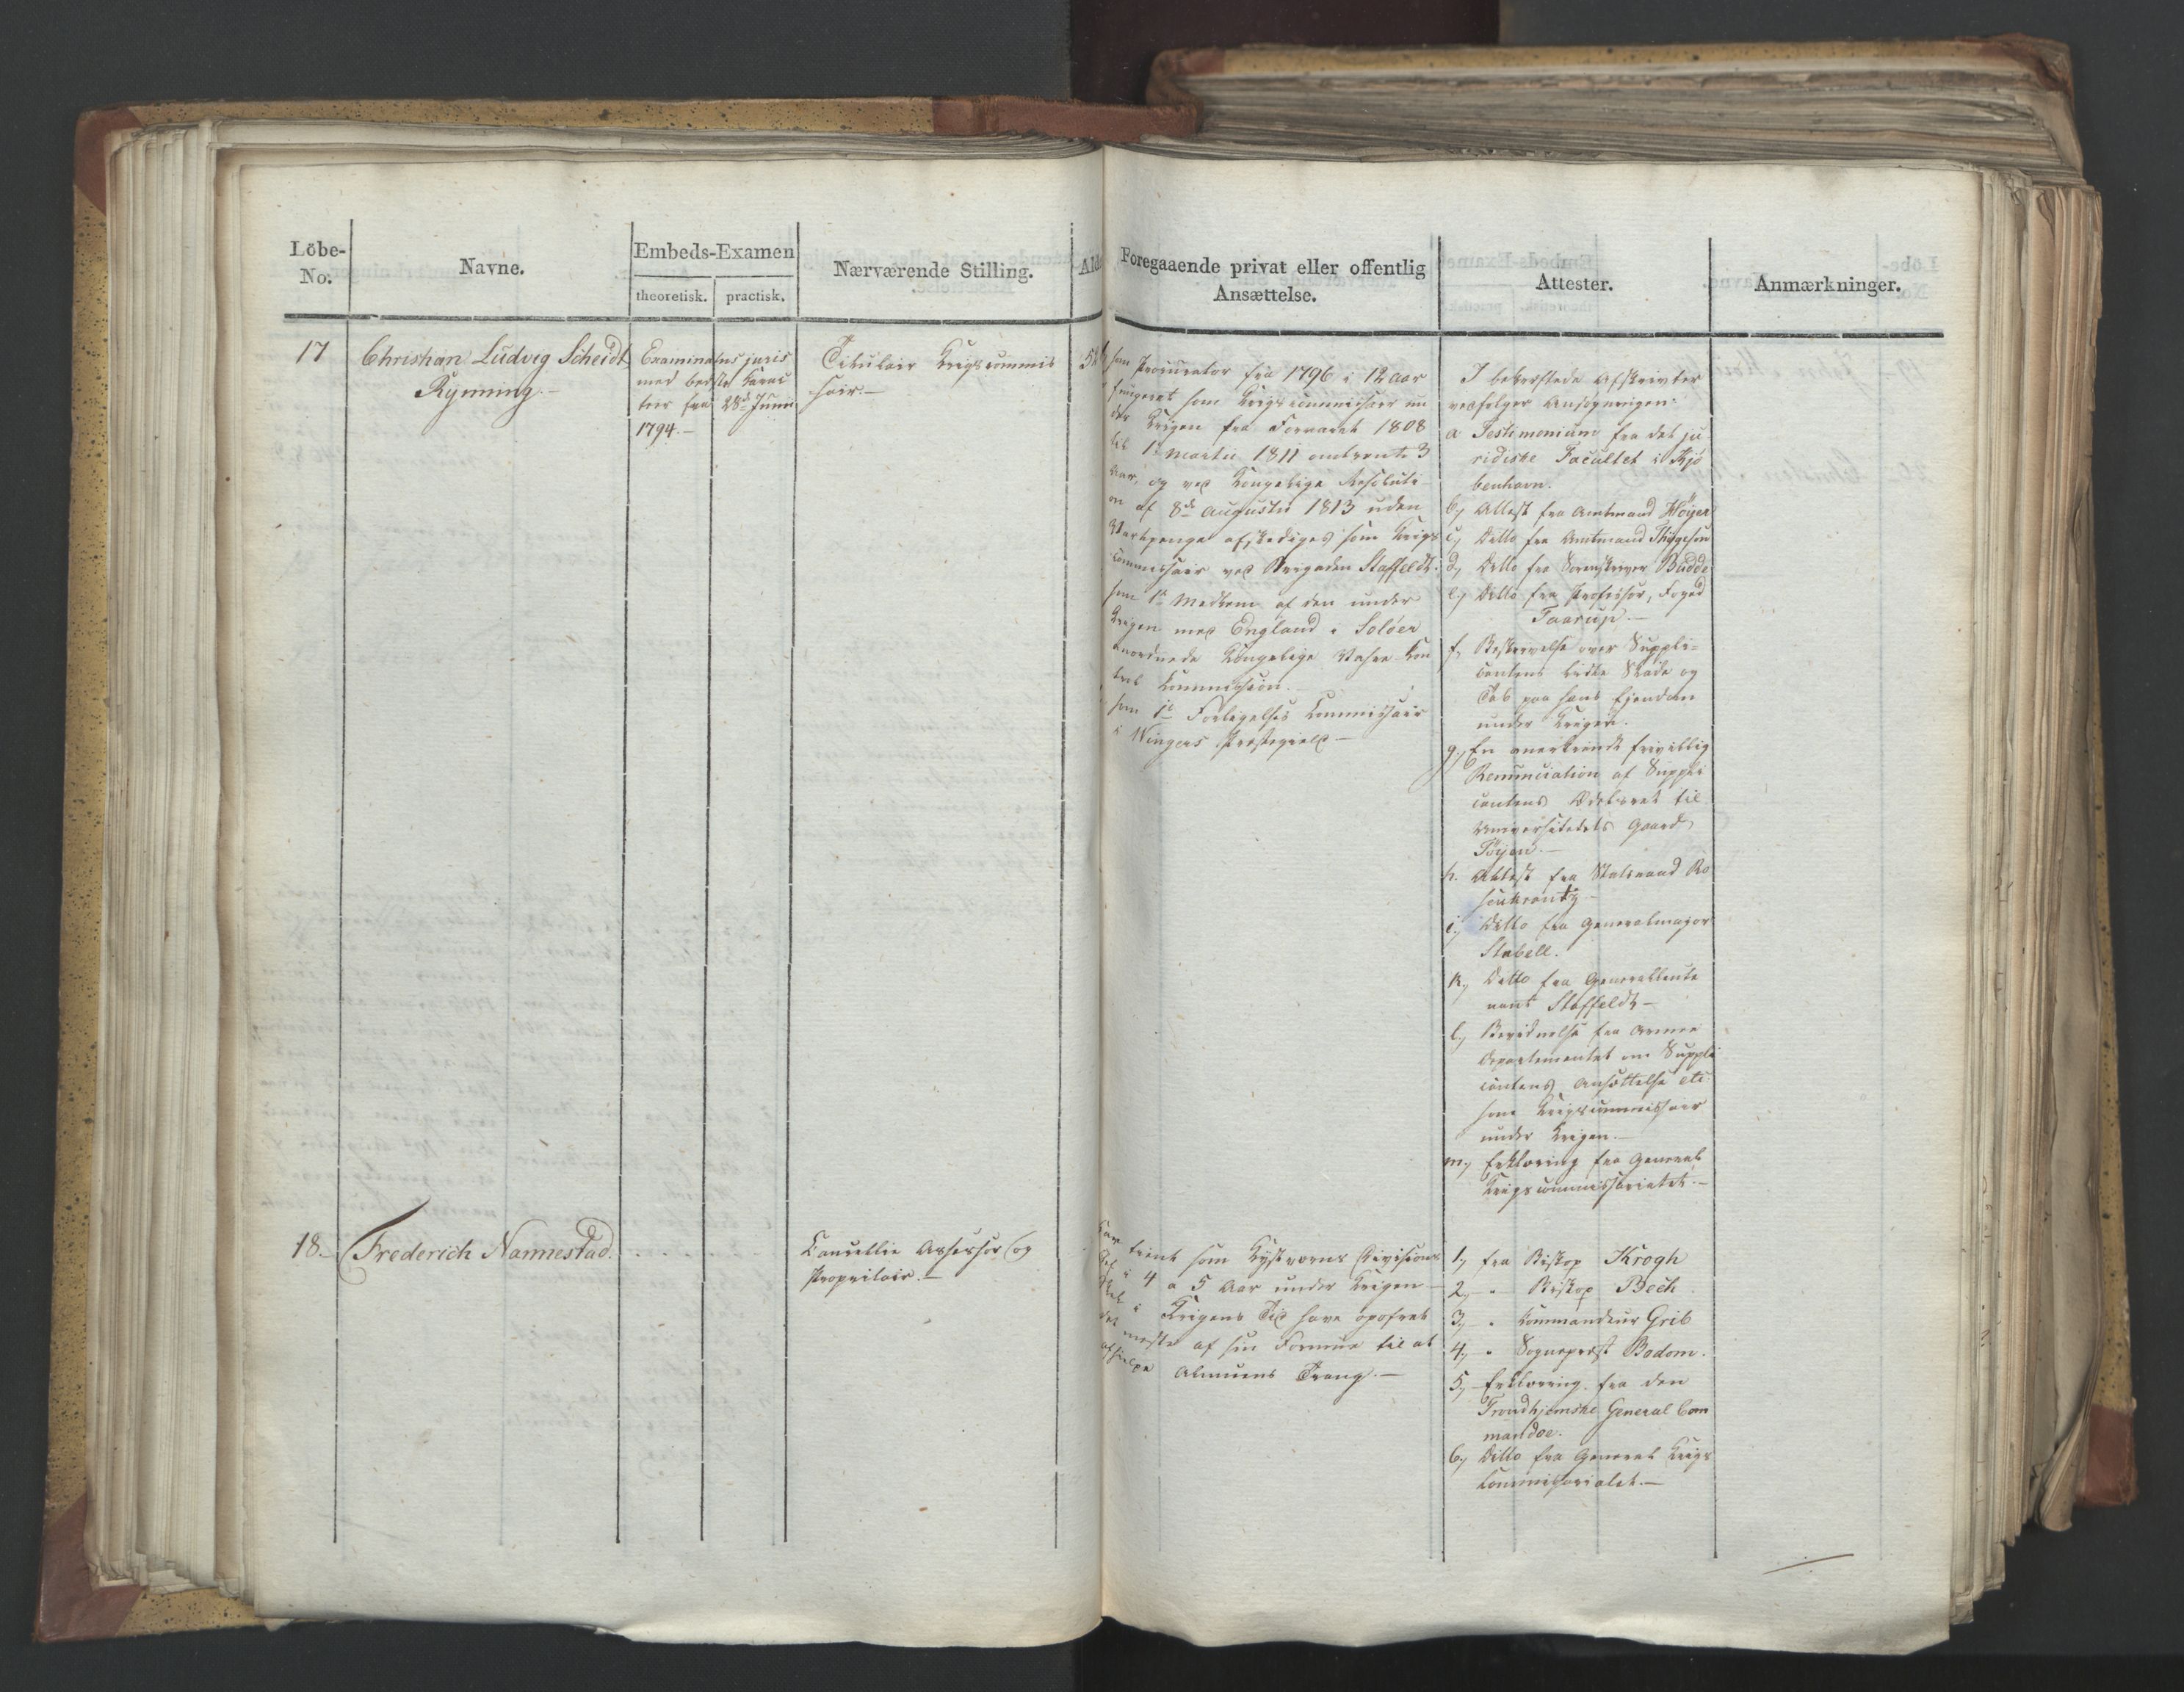 Löbe-No.
Navne.
Embeds-Examen
theoretisk.
practisk.
Nærværende Stilling.
Ald
Foregaaende privat eller offentlig
Ansættelse.
Attester.
Anmærkninger.
17
Christian Ludvig Scheidt
Rynning.-
Examinatus juris
med bedste Karac
teer fra 28de Junii
1794.-
Titulair Krigscommis
sair.-
som Procurator fra 1796 i 12 Aar
fungeret som Krigscommissair un
der Krigen fra Foraaret 1808
til 1te Martii 1811 omtrent 3
Aar, og ved Kongelige Resoluti
on af 8de Augustii 1813 uden
Vartpenge afskediges som Krigs
commissair ved Brigaden Staffeldt.
som 1te Medlem af den under
Krigen med England i Solöer
anordnede Kongelige
Commission.
som 1te Forligelses Commissair
i Wingers Præstegield-
I bekræftede Afskrivter
vedfølger Ansøgningen:
a Testimonium fra det ju
ridiske Facultet i Kjö
benhavn.
b, Attest fra Amtmand Höyer
c, Ditto fra Amtmand Thygeson
d, Ditto fra Sorenskriver Budde
e, Ditto fra Professor, Foged
Taarup.-
f, Beskrivelse over Suppli=
cantens lidte Skade og
Tab paa hans Ejendom
under Krigen.
g, En anerkiendt frivillig
Renunciation af Suppli
cantens Odelsret til
Universitetets Gaard
Töyen.-
h. Attest fra Statsraad Ro
senkrantz-
i, Ditto fra Generalmajor
Stabell.
k, Ditto fra Generallieute
nant Staffeldt-
l, Bevidnelse fra Armee
Departementet om Suppli
cantens Ansættelse etc
som Krigscommissair
under Krigen.-
m, Erklæring fra General
Krigscommissariatet.-
18.-
Frederich Nannestad.
Cancellie Assessor og
Proprietair.-
tient som Kystværns Divisions
i 4 a 5 Aar under Krigen-
i Krigens Tid have opofret
det meste af sin Formue til at
afhielpe Almuens Trang.-
1, fra Biskop Krogh
2, " Biskop Bech
3, " Commandeur Grib
4, " Sognepræst Bodom.
5, Erklæring fra den
Trondhjemske General Com
mandoe.
6, Ditto fra General Krigs
Commissariatet.-